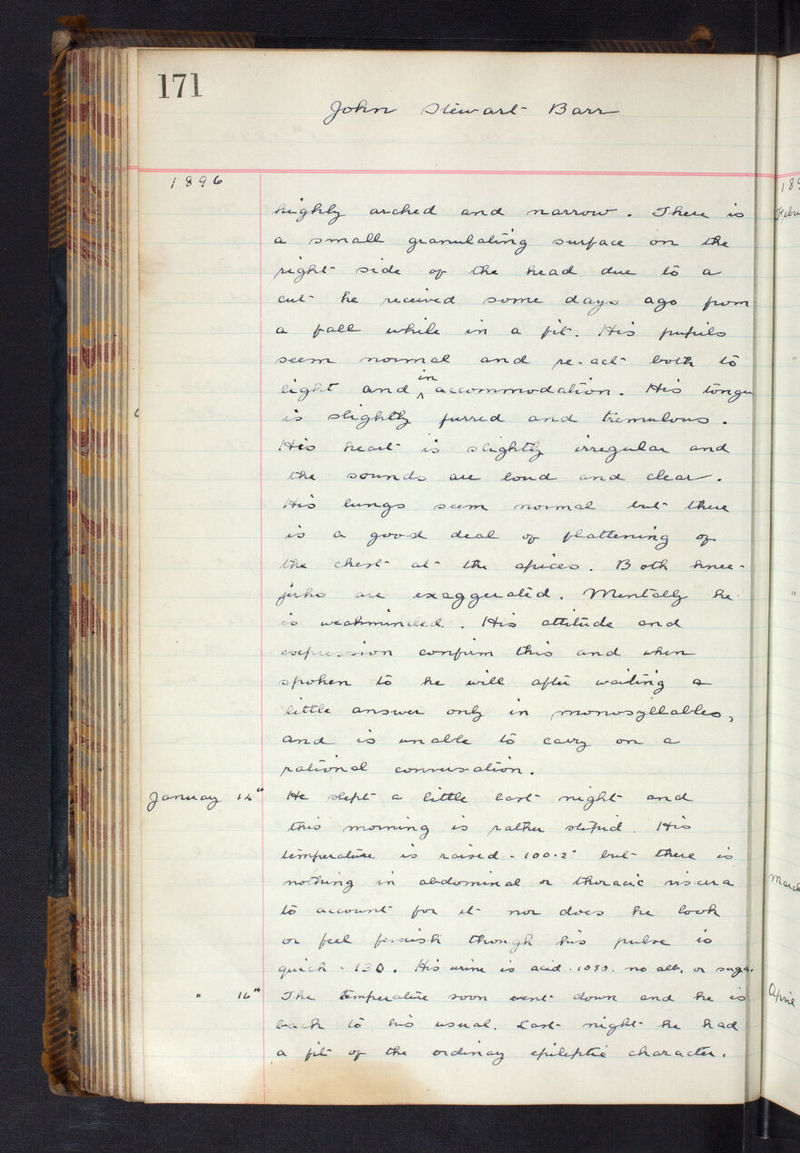 171
John Stewart Barr
1896
highly arched and narrow. There is
a small granulating surface on the
right side of the head due to a
cut he received some days ago from
a fall while in a fit. His pupils
seem normal and re-act both to
light and in accommodation. His tongue
is slightly furred and tremulous.
His heart is slightly irregular and
the sounds are loud and clear.
His lungs seem normal but there
is a good deal of flattening of
the chest at the apices. Both knee-
jerks are exaggerated. Mentally he
is weakminded. His attitude and
expression confirm this and when
spoken to he will after waiting a
little answer only in monosyllables,
and is unable to carry on a
rational conversation.
January 14th He slept a little last night and
this morning is rather stupid. His
temperature is raised - 100.2° but there is
nothing in abdominal or thoracic viscera
to account for it nor does he look
or feel feverish though his pulse is
quick - 130. His urine is acid. 1030. no alb. or sugar.
" 16th The temperature soon went down and he is
back to his usual. Last night he had
a fit of the ordinary epileptic character.
189
Febru
"
"
March
April